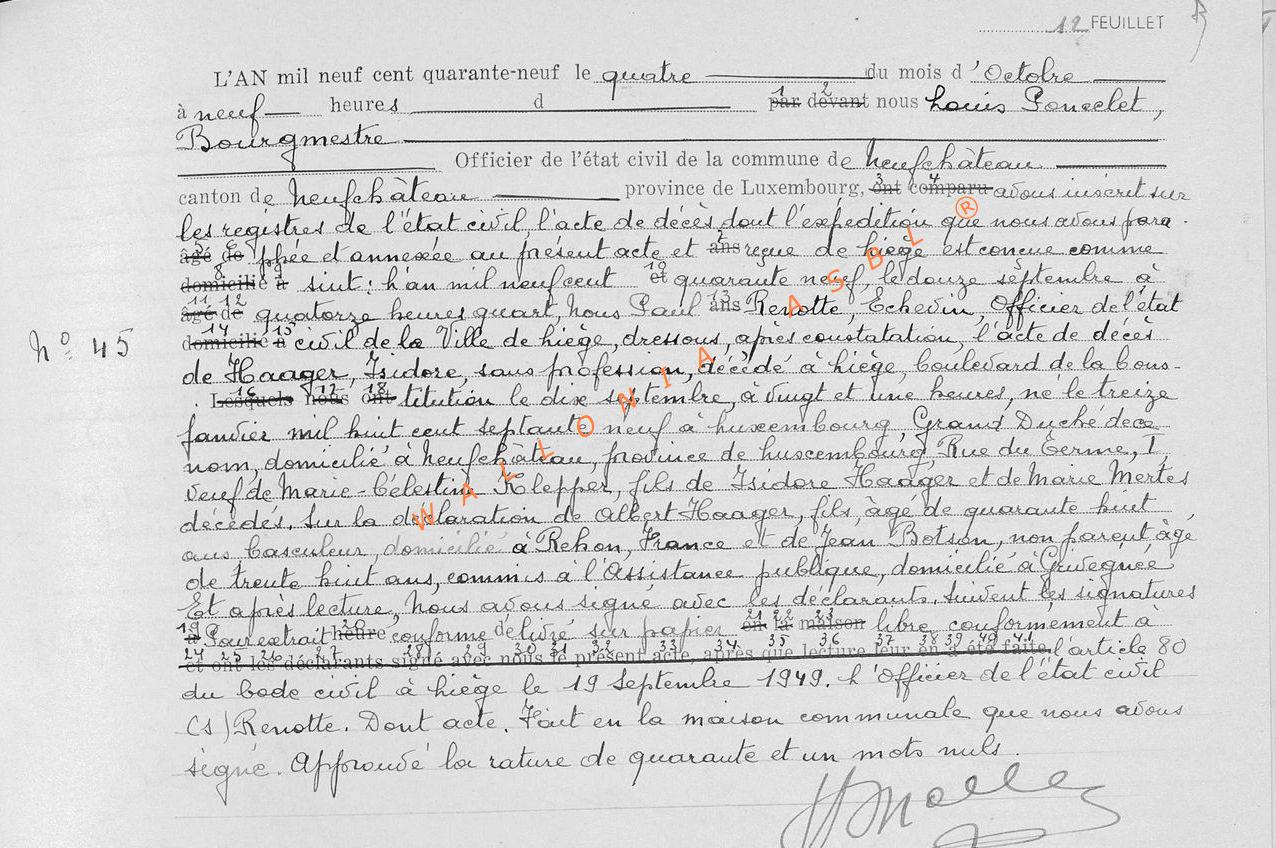 12 FEUILLET
L'AN mil neuf cent quarante-neuf le quatre du mois d'Octobre
à neuf heures d par devant nous Louis Poncelet,
Bourgmestre
Officier de l'état civil de la commune de Neufchâteau
canton de Neufchâteau province de Luxembourg, ont comparu avons inscrit sur
les registres de l'état civil, l'acte de décès dont l'expédition que nous avons para-
âgé de phée et annexée au présent acte et ans reçue de Liège est conçue comme
domicilié à suit: L'an mil neuf cent et quarante neuf, le douze septembre à
âgé de quatorze heures quart, Nous Paul ans Renotte, Echevin, Officier de l'état
N° 45 domicilié à civil de la Ville de Liège, dressons, après constatation, l'acte de décès
de Haager, Isidore, sans profession, décédé à Liège, boulevard de la Cons-
Lesquels nous ont titution le dix septembre, à vingt et une heures, né le treize
janvier mil huit cent septante neuf à Luxembourg, Grand Duché de ce
nom, domicilié à Neufchâteau, province de Luxembourg, Rue du Terme, I,
veuf de Marie-Célestine Klepper, fils de Isidore Haager et de Marie Mertes
décédés. Sur la déclaration de Albert Haager, fils, âgé de quarante huit
ans basculeur, domicilié à Rehon, France et de Jean Botson, non parent, âgé
de trente huit ans, commis à l'Assistance publique, domicilié à Grivegnée
Et après lecture, Nous avons signé avec les déclarants. Suivent les signatures
à Pour extrait heure conforme délivré sur papier en la maison libre, conformément à
et ont les déclarants signé avec nous le présent acte, après que lecture leur en a été faite. l'article 80
du Code civil à Liège le 19 Septembre 1949. L'Officier de l'état civil
(s) Renotte. Dont acte. Fait en la maison communale que nous avons
signé. Approuvé la rature de quarante et un mots nuls.
WALLONIA ASBL ®